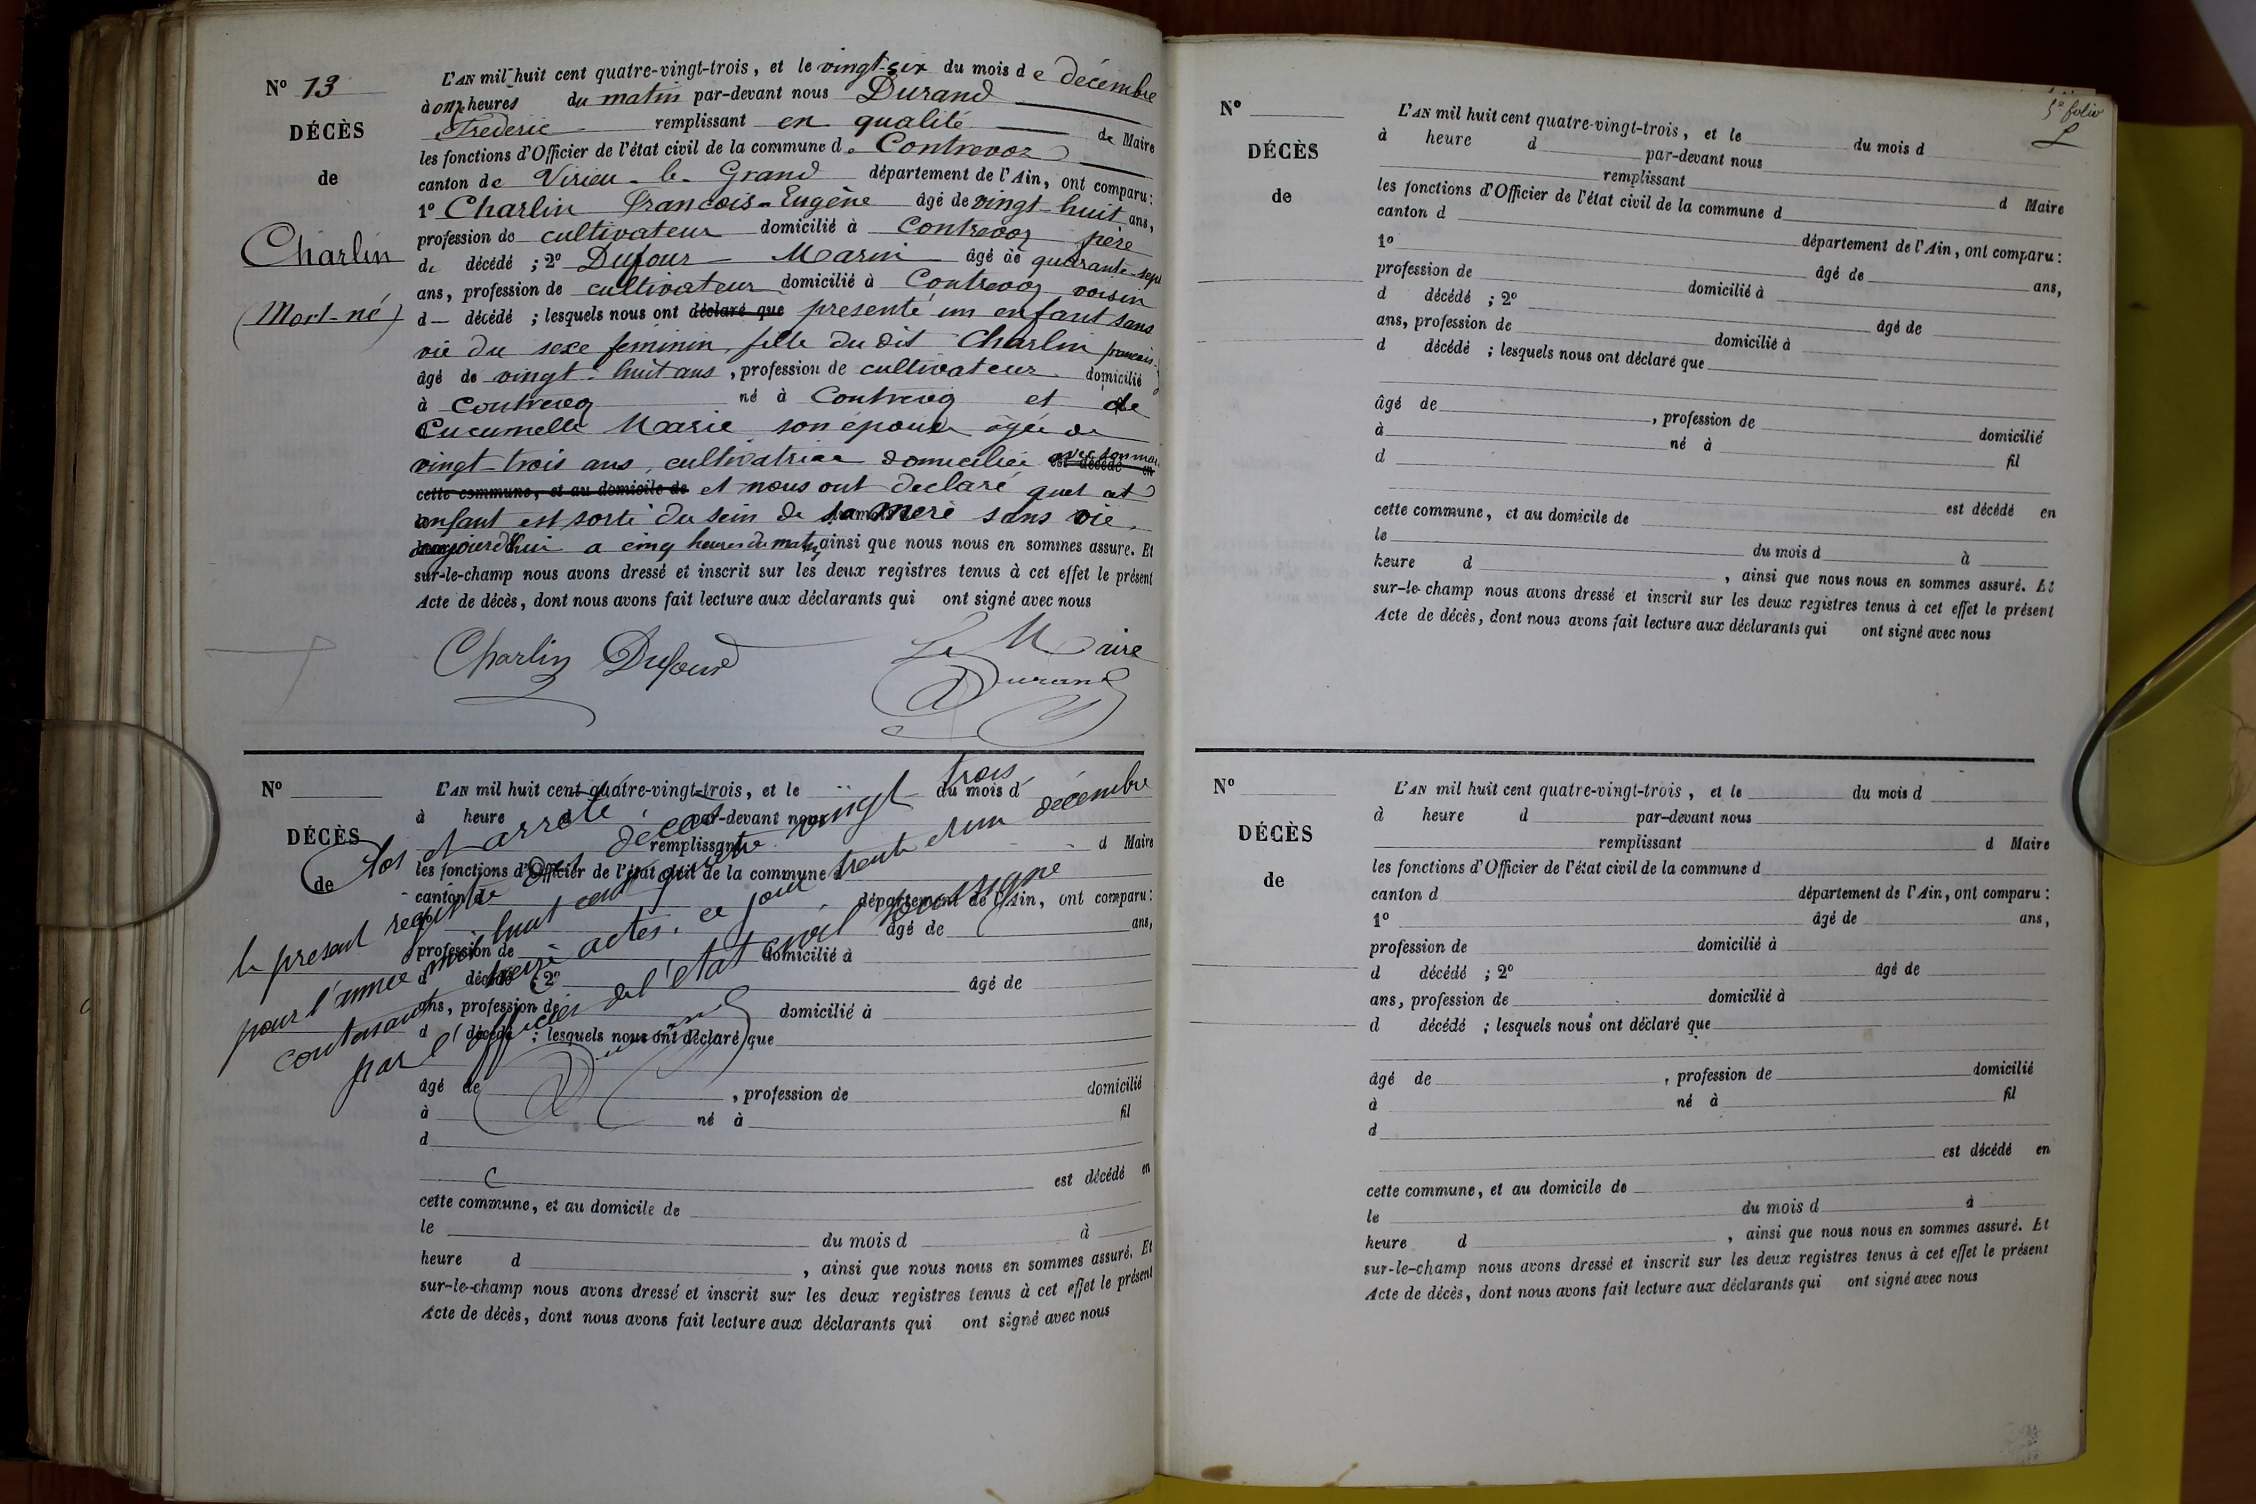 N° 13
DÉCÈS
de
Charlin
(Mort-né)
L'AN mil huit cent quatre-vingt-trois, et le vingt-six du mois de décembre
à onze heures du matin par-devant nous Durand
Frederic remplissant en qualité de Maire
les fonctions d'Officier de l'état civil de la commune de Contrevoz
canton de Virieu-le-Grand département de l'Ain, ont comparu:
1° Charlin François-Eugène âgé de vingt-huit ans,
profession de cultivateur domicilié à Contrevoz père
de décédé ; 2° Dufour Marin âgé de quarante-sept
ans, profession de cultivateur domicilié à Contrevoz voisin
d décédé ; lesquels nous ont déclaré que presenté un enfant sans
vie du sexe féminin, fille du dit Charlin françois-
âgé de vingt-huit ans, profession de cultivateur domicilié
à Contrevoz né à Contrevoz et de
Cucumelle Marie son épouse âgée de
vingt-trois ans, cultivatrice domiciliée avec son mari est décédé en
cette commune, et au domicile de et nous ont declaré quel cet
enfant est sorti du sein de sa mere sans vie
aujourd'hui a cinq heures du matin, ainsi que nous nous en sommes assuré. Et
sur-le-champ nous avons dressé et inscrit sur les deux registres tenus à cet effet le présent
Acte de décès, dont nous avons fait lecture aux déclarants qui ont signé avec nous
Charlin Dufour Le Maire
Durand
N°
DÉCÈS
de
L'AN mil huit cent quatre-vingt-trois, et le du mois d
à heure d par-devant nous
remplissant d Maire
les fonctions d'Officier de l'état civil de la commune d
canton d département de l'Ain, ont comparu:
1° âgé de ans,
profession de domicilié à
d décédé ; 2° âgé de
ans, profession de domicilié à
d décédé ; lesquels nous ont déclaré que
âgé de , profession de domicilié
à né à fil
d
est décédé en
cette commune, et au domicile de
le du mois d à
heure d , ainsi que nous nous en sommes assuré. Et
sur-le-champ nous avons dressé et inscrit sur les deux registres tenus à cet effet le présent
Acte de décès, dont nous avons fait lecture aux déclarants qui ont signé avec nous
Clos et arrêté
le present registre des décès
pour l'année mil huit cent quatre vingt trois
contenant treize actes, ce jour trente et un décembre
par l'officier de l'état civil soussigné
Durand
5e folio
N°
DÉCÈS
de
L'AN mil huit cent quatre-vingt-trois, et le du mois d
à heure d par-devant nous
remplissant d Maire
les fonctions d'Officier de l'état civil de la commune d
canton d département de l'Ain, ont comparu:
1° âgé de ans,
profession de domicilié à
d décédé ; 2° âgé de
ans, profession de domicilié à
d décédé ; lesquels nous ont déclaré que
âgé de , profession de domicilié
à né à fil
d
est décédé en
cette commune, et au domicile de
le du mois d à
heure d , ainsi que nous nous en sommes assuré. Et
sur-le-champ nous avons dressé et inscrit sur les deux registres tenus à cet effet le présent
Acte de décès, dont nous avons fait lecture aux déclarants qui ont signé avec nous
N°
DÉCÈS
de
L'AN mil huit cent quatre-vingt-trois, et le du mois d
à heure d par-devant nous
remplissant d Maire
les fonctions d'Officier de l'état civil de la commune d
canton d département de l'Ain, ont comparu:
1° âgé de ans,
profession de domicilié à
d décédé ; 2° âgé de
ans, profession de domicilié à
d décédé ; lesquels nous ont déclaré que
âgé de , profession de domicilié
à né à fil
d
est décédé en
cette commune, et au domicile de
le du mois d à
heure d , ainsi que nous nous en sommes assuré. Et
sur-le-champ nous avons dressé et inscrit sur les deux registres tenus à cet effet le présent
Acte de décès, dont nous avons fait lecture aux déclarants qui ont signé avec nous